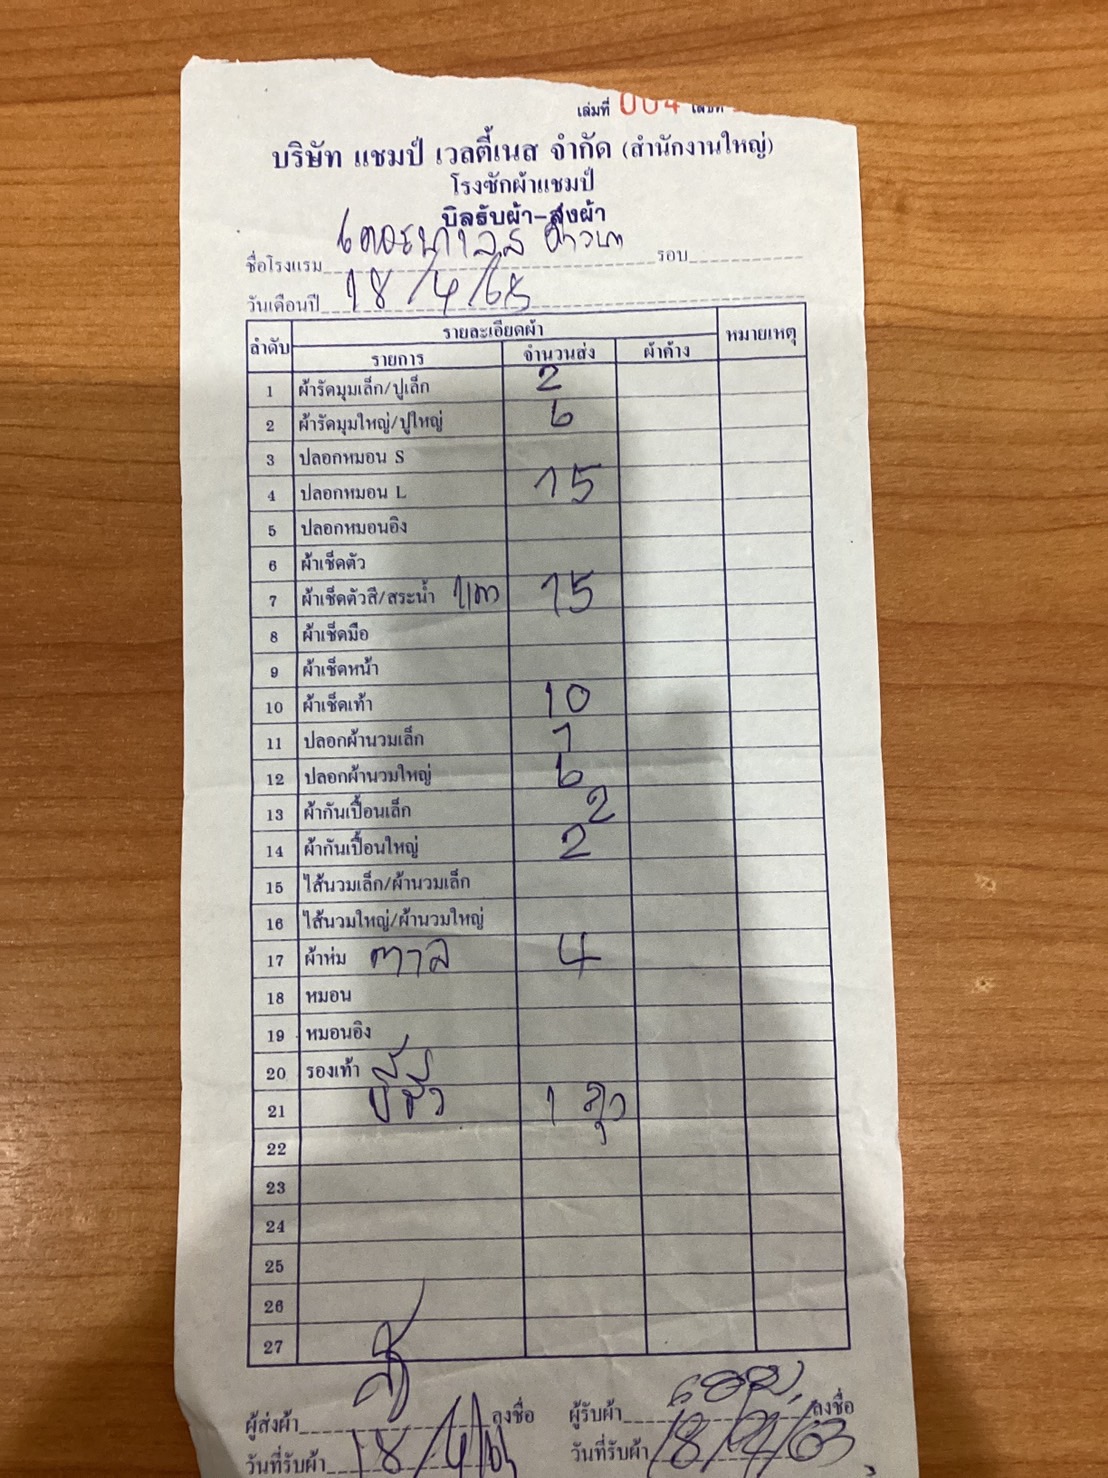 เล่มที่ 004 เลขที่
บริษัท แชมป์ เวลตี้เนส จำกัด (สำนักงานใหญ่)
โรงซักผ้าแชมป์
บิลรับผ้า-ส่งผ้า
ชื่อโรงแรม รอบ
วันเดือนปี 18/4/65
ลำดับ รายละเอียดผ้า หมายเหตุ
รายการ จำนวนส่ง ผ้าค้าง
1 ผ้ารัดมุมเล็ก/ปูเล็ก 2
2 ผ้ารัดมุมใหญ่/ปูใหญ่ 6
3 ปลอกหมอน S
4 ปลอกหมอน L 15
5 ปลอกหมอนอิง
6 ผ้าเช็ดตัว
7 ผ้าเช็ดตัวสี/สระน้ำ 15
8 ผ้าเช็ดมือ
9 ผ้าเช็ดหน้า
10 ผ้าเช็ดเท้า 10
11 ปลอกผ้านวมเล็ก 1
12 ปลอกผ้านวมใหญ่ 6
13 ผ้ากันเปื้อนเล็ก 2
14 ผ้ากันเปื้อนใหญ่ 2
15 ไส้นวมเล็ก/ผ้านวมเล็ก
16 ไส้นวมใหญ่/ผ้านวมใหญ่
17 ผ้าห่ม ตาล 4
18 หมอน
19 หมอนอิง
20 รองเท้า
21 1
22
23
24
25
26
27
ผู้ส่งผ้า ลงชื่อ ผู้รับผ้า ลงชื่อ
วันที่รับผ้า วันที่รับผ้า